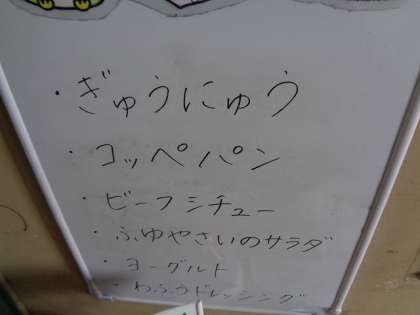 ・ぎゅうにゅう
・コッペパン
・ビーフシチュー
・ふゆやさいのサラダ
・ヨーグルト
・わふうドレッシング